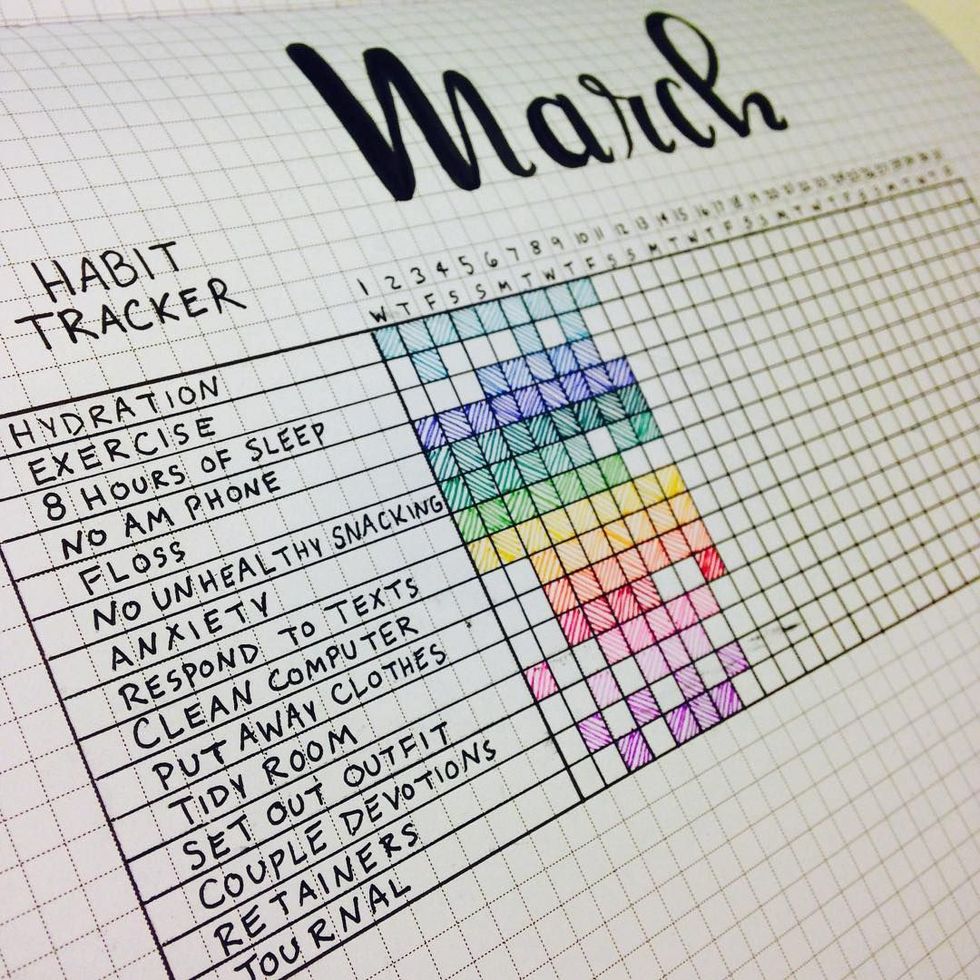 March
HABIT
TRACKER
1 2 3 4 5 6 7 8 9 10 11 12 13 14 15 16 17 18 19 20
W T F S S M T W T F S S M T W T F S S M T W T F S S M T W T F
HYDRATION
EXERCISE
8 HOURS OF SLEEP
NO AM PHONE
FLOSS
NO UNHEALTHY SNACKING
ANXIETY
RESPOND TO TEXTS
CLEAN COMPUTER
PUT AWAY CLOTHES
TIDY ROOM
SET OUT OUTFIT
COUPLE DEVOTIONS
RETAINERS
JOURNAL